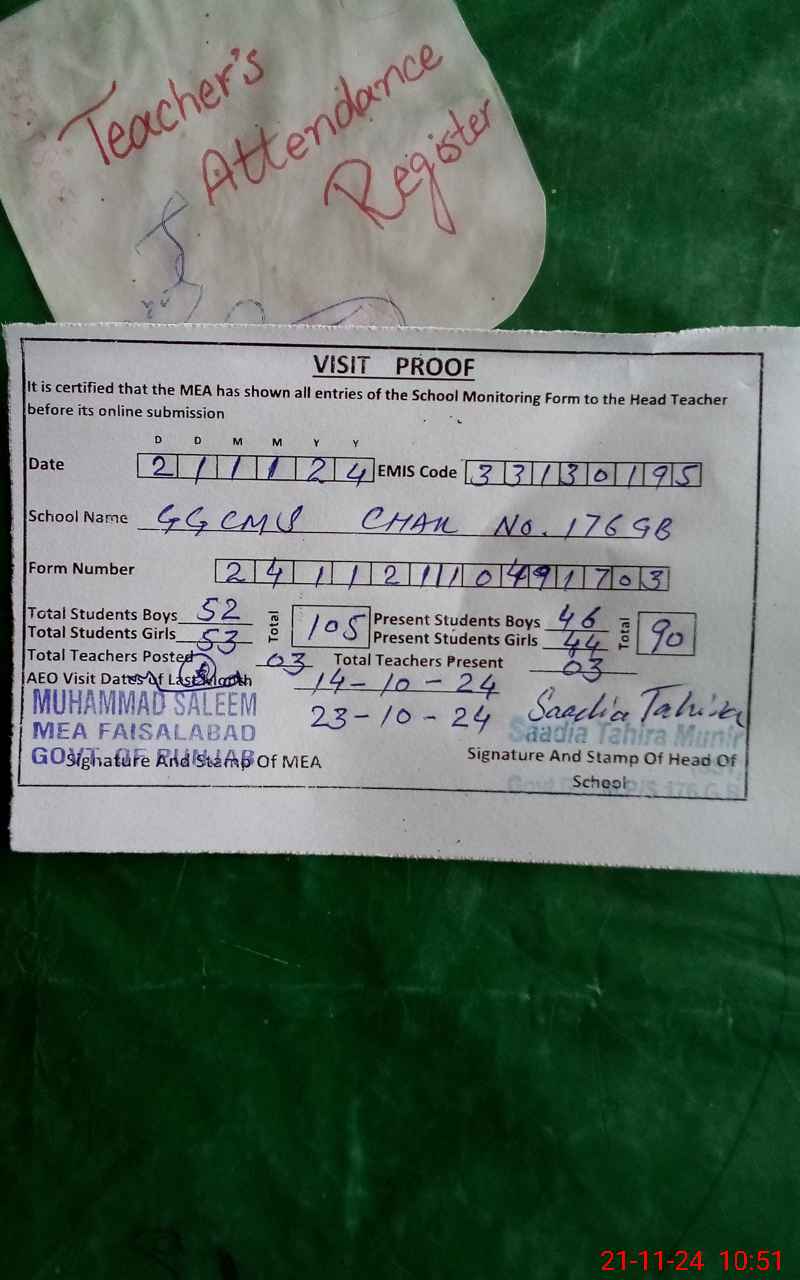 Teacher's
Attendance
Register
VISIT PROOF
It is certified that the MEA has shown all entries of the School Monitoring Form to the Head Teacher
before its online submission
D D M M Y Y
Date 2 1 1 1 2 4 EMIS Code 3 3 1 3 0 1 9 5
School Name GGCMS CHAK NO. 176 GB
Form Number 2 4 1 1 2 1 1 0 4 9 1 7 0 3
Total Students Boys 52 Total 105 Present Students Boys 46 Total 90
Total Students Girls 53 Present Students Girls 44
Total Teachers Posted 03 Total Teachers Present 03
AEO Visit Dates of Last Month 14-10-24
23-10-24
MUHAMMAD SALEEM
MEA FAISALABAD
GOVT. OF PUNJAB
Signature And Stamp Of MEA
Saadia Tahira
Saadia Tahira Munir
Signature And Stamp Of Head Of
School
176 G.B
21-11-24 10:51